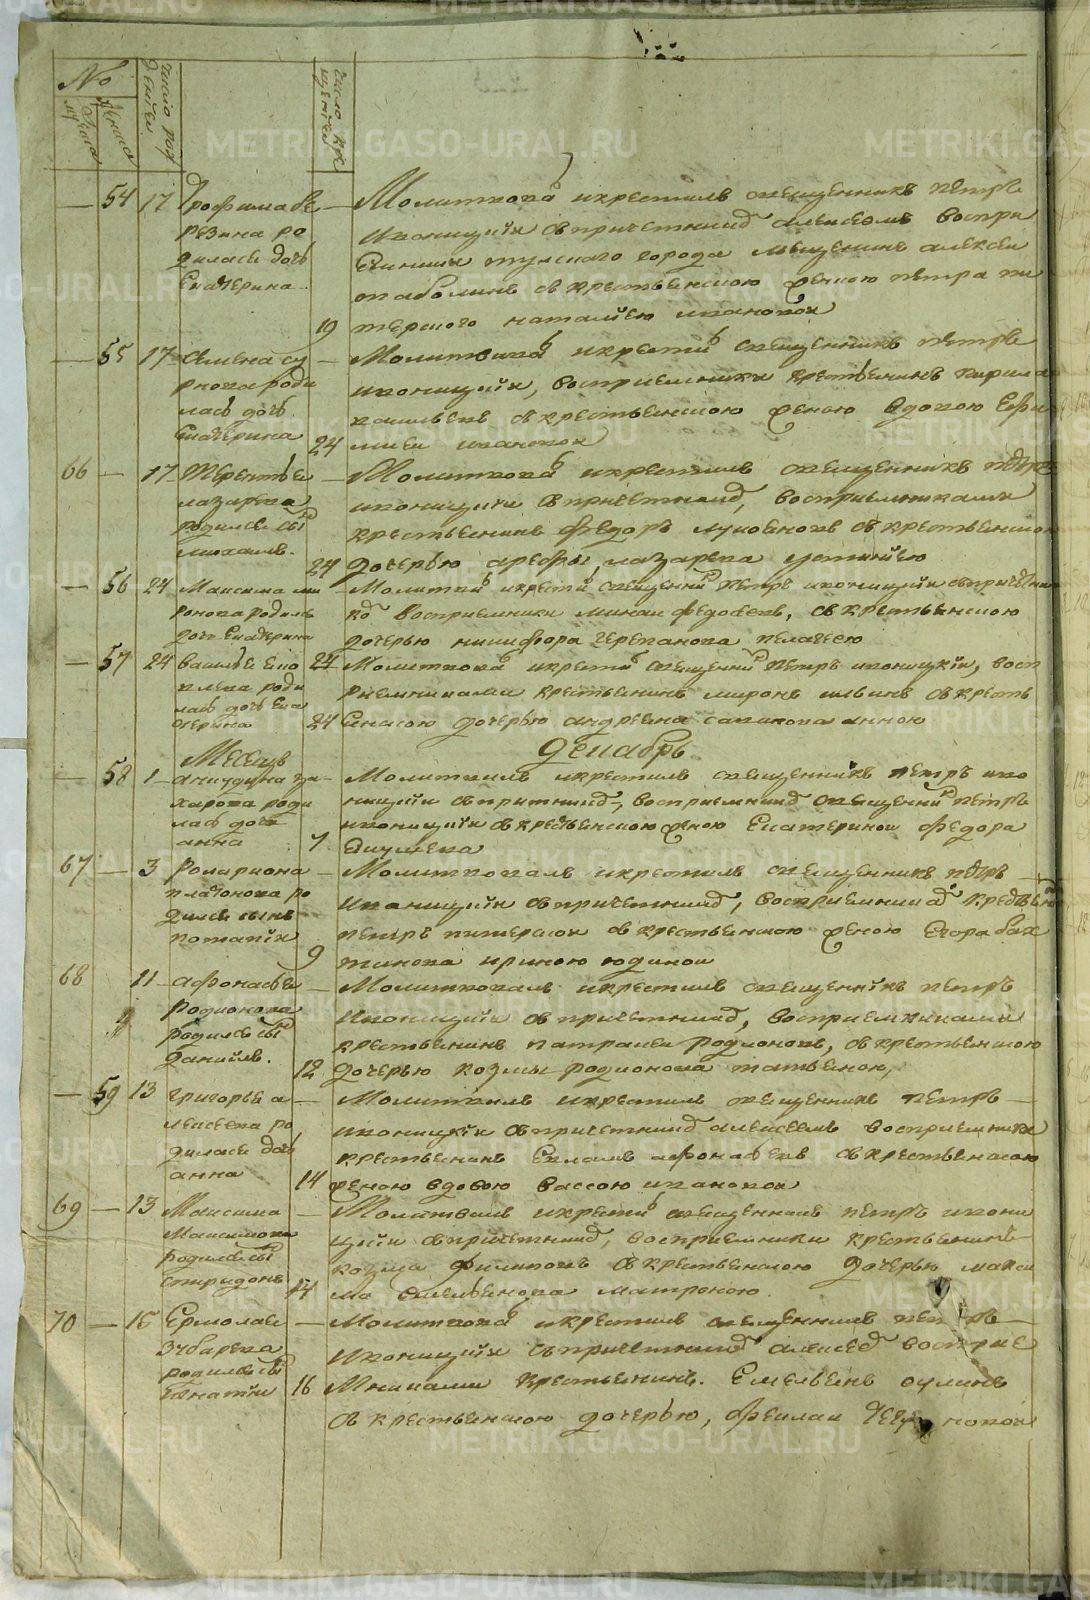 METRIKI.GASO-URAL.RU
№
мужска
женска
число рождения
число крещения
54 17 Трофима Бе
резина ро
дилась дочь
Екатерина
19
Молитвовалъ и крестилъ священникъ Петръ
Иконицкій съ причетникомъ Алексеемъ воспри
города мещенинъ Алексеи
съ крестьянскою женою Петра Пи
терского Наталіею Ивановой
55 17 Семена Су
рнова роди
лась дочь
Екатерина
24
Молитвовалъ и крестилъ священникъ Петръ
Иконицкій, восприемники крестьянинъ Кирила
съ крестьянскою женою вдовою Ефи
миеи Ивановой
66 17 Терентья
Лазарева
родился сынъ
Михаилъ.
24
Молитвовалъ и крестилъ священникъ Петръ
Иконицкій съ причетникомъ, восприемниками
крестьянинъ Федоръ съ крестьянскою
дочерью Арефы Лазарева Устиніею
56 24 Максима Ми
ронова родилась
дочь Екатерина
Молитвовалъ и крестилъ священникъ Петръ Иконицкій съ причетни
ко восприемники Михаи Федосеевъ, съ крестьянскою
дочерью Никифора Черепанова Пелагеею
57 24 Василья
роди
лась дочь Ека
терина
24
24
Молитвовалъ и крестилъ священникъ Петръ Иконицкій, восп
риемниками крестьянинъ Миронъ Ильинъ съ кресть
янскою дочерью Андреяна Савинова Анною
Месецъ Декабрь
58 1 Аникудина За
харова роди
лась дочь
Анна
7
Молитвилъ и крестилъ священникъ Петръ Ико
ницкіи съ причетникомъ, восприемникомъ священникъ Петръ
Иконицкій съ крестьянскою женою Екатериной Федора
67 3 Романа
Платонова ро
дился сынъ
Потапій
9
Молитвовалъ и крестилъ священникъ Петръ
Иконицкій съ причетникомъ, восприемникомъ крестьянинъ
Петръ Питерской съ крестьянскою женою Егора Бах
тинова Ириною Юдиной
68 11 Афонасья
Родионова
родился сынъ
Даниилъ.
12
Молитвовалъ и крестилъ священникъ Петръ
Иконицкій съ причетникомъ, восприемниками
крестьянинъ Патракеи Родионовъ, съ крестьянскою
дочерью Козмы Родионова Татьяною,
59 13 Григорья А
лексеева ро
дилась дочь
Анна
14
Молитвилъ и крестилъ священникъ Петръ
Иконицкій съ причетникомъ Алексеемъ восприемники
крестьянинъ Афонасьевъ съ крестьянскою
женою вдовою Вассою Ивановой
69 13 Максима
Максимова
родился сынъ
Спиридонъ
14
Молитвилъ и крестилъ священникъ Петръ Икони
цкіи съ причетникомъ, восприемники крестьянинъ
Козма Филиповъ съ крестьянскою дочерью Макси
ма Матроною.
70 15 Ермолая
Зубарева
родился сынъ
Игнатіи
16
Молитвовалъ и крестилъ священникъ Петръ
Иконицкій съ причетникомъ Алексеемъ восприе
мниками крестьянинъ. Емельянъ
съ крестьянскою дочерью,